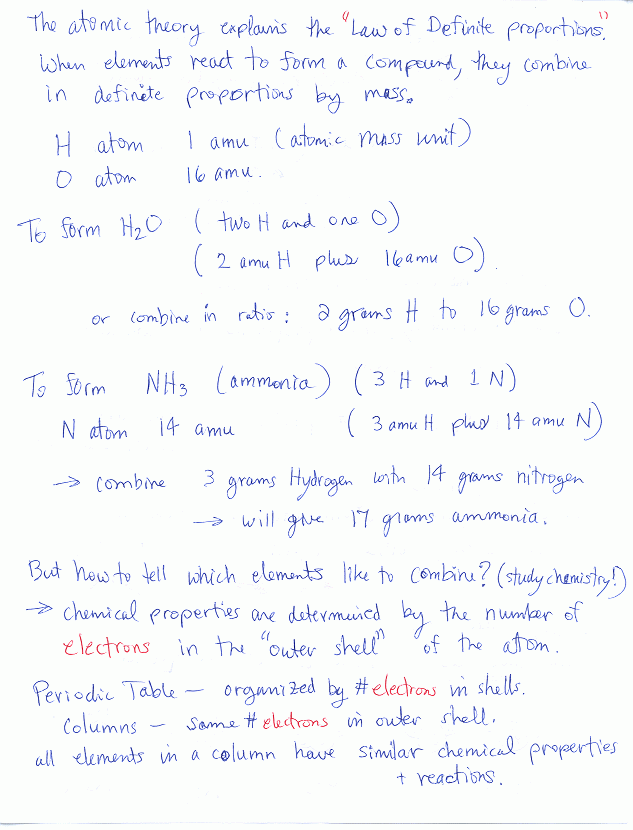 The atomic theory explains the "Law of Definite proportions".
When elements react to form a compound, they combine
in definite proportions by mass.
H atom 1 amu (atomic mass unit)
O atom 16 amu.
To form H₂O (two H and one O)
(2 amu H plus 16 amu O).
or combine in ratio: 2 grams H to 16 grams O.
To form NH₃ (ammonia) (3 H and 1 N)
N atom 14 amu (3 amu H plus 14 amu N)
→ combine 3 grams Hydrogen with 14 grams nitrogen
→ will give 17 grams ammonia.
But how to tell which elements like to combine? (study chemistry!)
→ chemical properties are determined by the number of
electrons in the "outer shell" of the atom.
Periodic Table — organized by # electrons in shells.
Columns — same # electrons in outer shell.
all elements in a column have similar chemical properties
+ reactions.